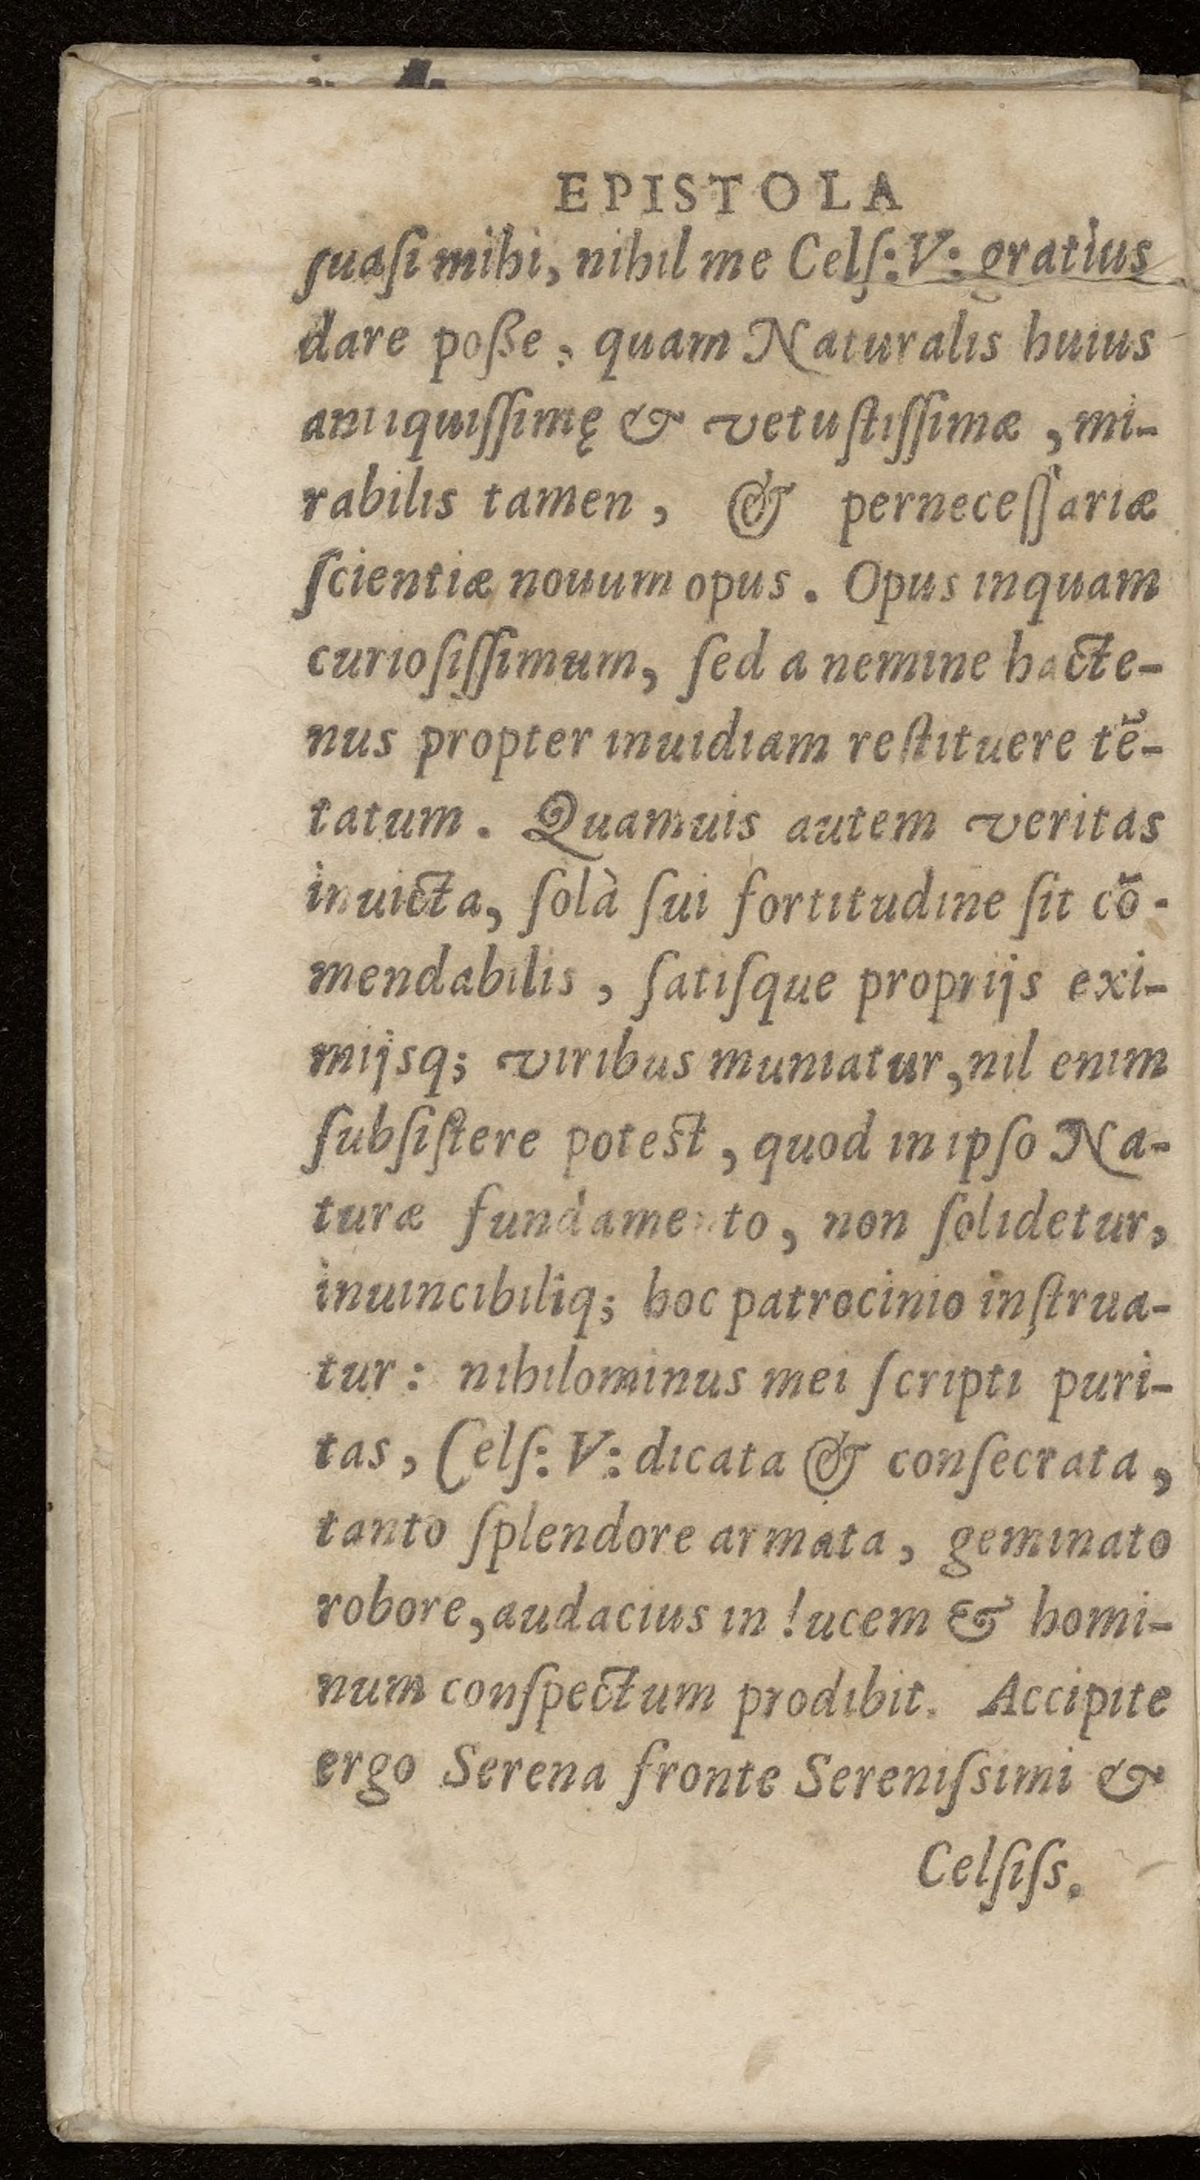 EPISTOLA
ſuaſi mihi, nihil me Celſ: V: gratius
dare poſſe, quam Naturalis huius
antiquiſſimę & vetuſtiſſimæ, mi-
rabilis tamen, & perneceſſariæ
ſcientiæ nouum opus. Opus inquam
curioſiſſimum, ſed a nemine hacte-
nus propter inuidiam reſtituere tẽ-
tatum. Quamuis autem veritas
inuicta, ſolà ſui fortitudine ſit cõ-
mendabilis, ſatiſque proprijs exi-
mijsq; viribus muniatur, nil enim
ſubſiſtere poteſt, quod in ipſo Na-
turæ fundamento, non ſolidetur,
inuincibiliq; hoc patrocinio inſtrua-
tur: nihilominus mei ſcripti puri-
tas, Celſ: V: dicata & conſecrata,
tanto ſplendore armata, geminato
robore, audacius in lucem & homi-
num conſpectum prodibit. Accipite
ergo Serena fronte Sereniſsimi &
Celſiſs.